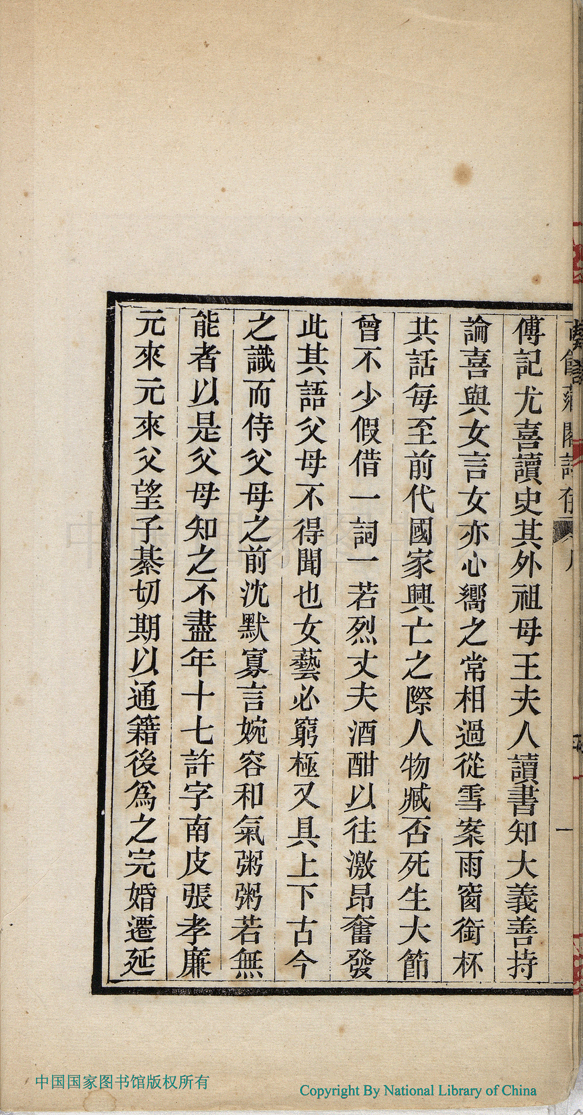 傳記尤喜讀史其外祖母王夫人讀書知大義善持
論喜與女言女亦心嚮之常相過從雪案雨窗銜杯
共話每至前代國家興亡之際人物臧否死生大節
曾不少假借一詞一若烈丈夫酒酣以往激昂奮發
此其語父母不得聞也女藝必窮極又具上下古今
之識而侍父母之前沈默寡言婉容和氣粥粥若無
能者以是父母知之不盡年十七許字南皮張孝廉
元來元來父望子綦切期以通籍後爲之完婚遷延
中国国家图书馆版权所有
Copyright By National Library of China